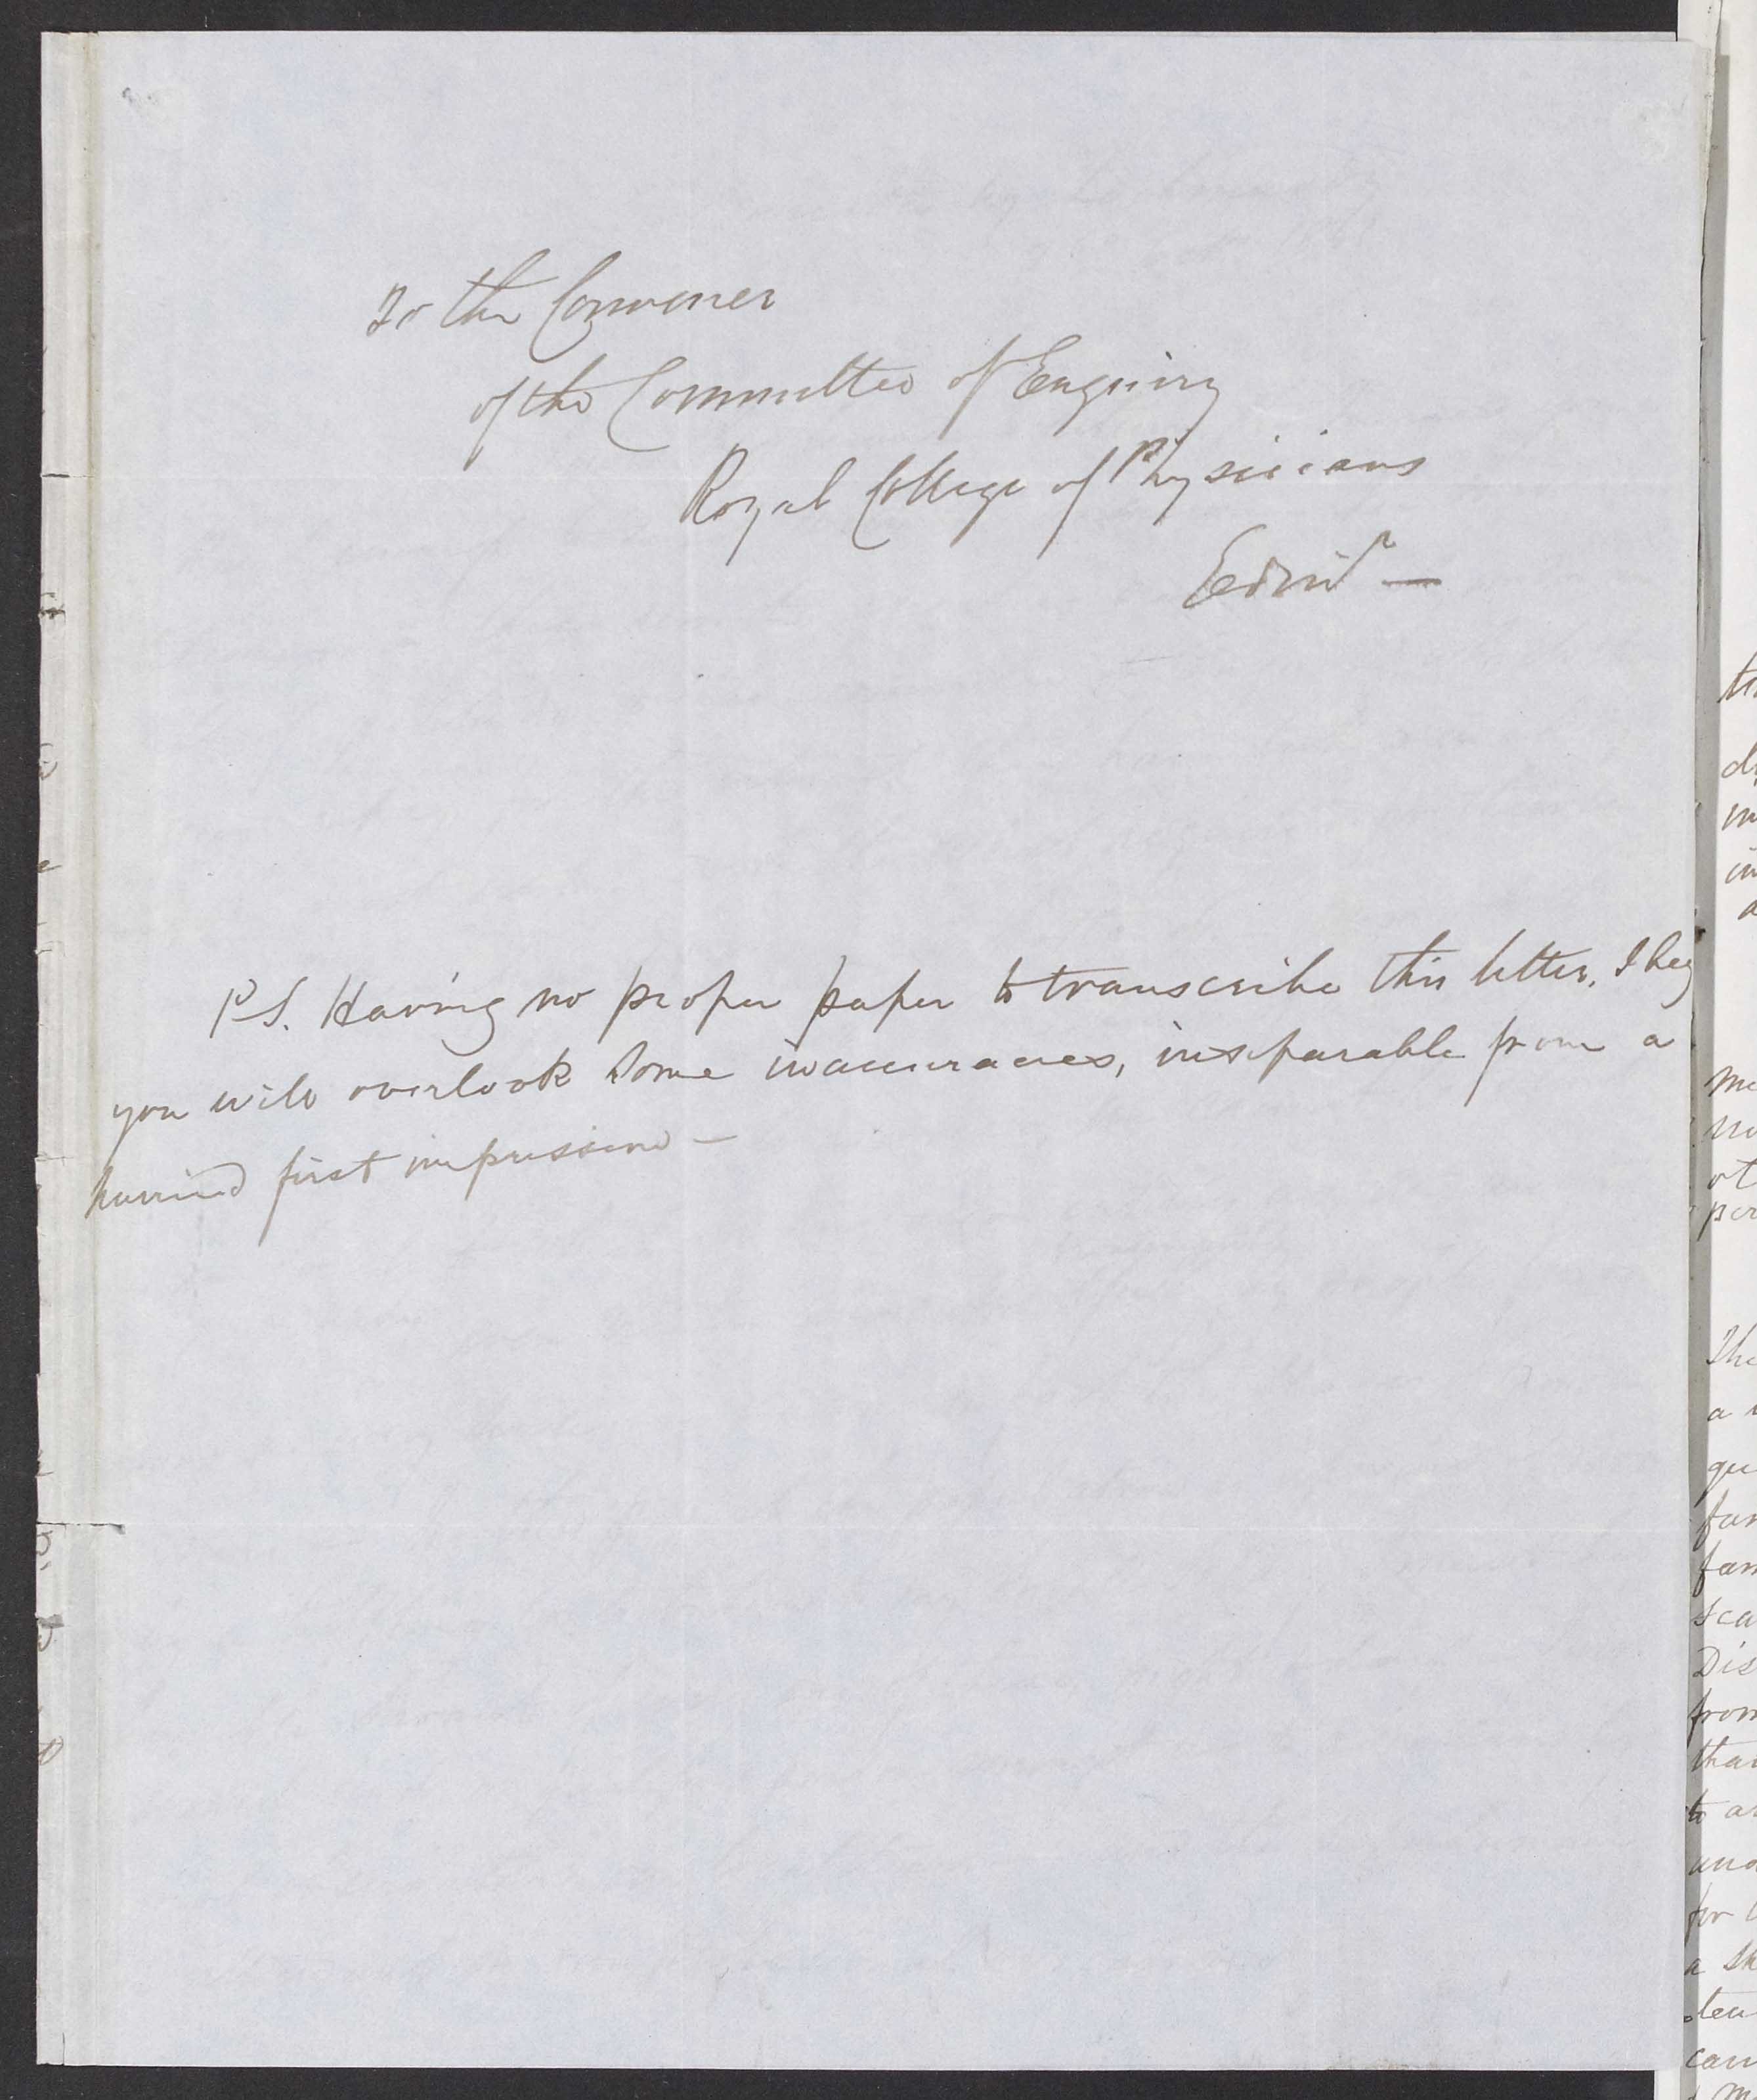 To the Convener
of the Committee of Enquiry
Royal College of Physicians
Edinr —
P.S. Having no proper paper to transcribe this letter, I beg
you will overlook some inaccuracies, inseparable from a
hurried first impression —